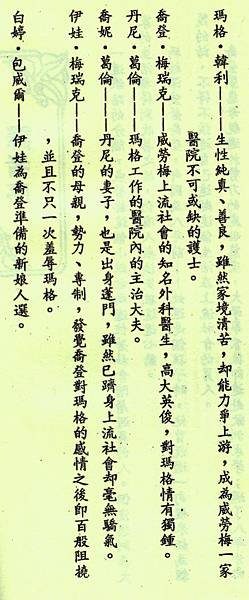 瑪格‧韓利——生性純真、善良，雖然家境清苦，却能力爭上游，成為威勞梅一家
醫院不可或缺的護士。
喬登‧梅瑞克——威勞梅上流社會的知名外科醫生，高大英俊，對瑪格情有獨鍾。
丹尼‧葛倫——瑪格工作的醫院內的主治大夫。
喬妮‧葛倫——丹尼的妻子，也是出身蓬門，雖然已躋身上流社會却毫無驕氣。
伊娃‧梅瑞克——喬登的母親，勢力、專制，發覺喬登對瑪格的感情之後即百般阻撓
，並且不只一次羞辱瑪格。
白婷‧包威爾——伊娃為喬登準備的新娘人選。